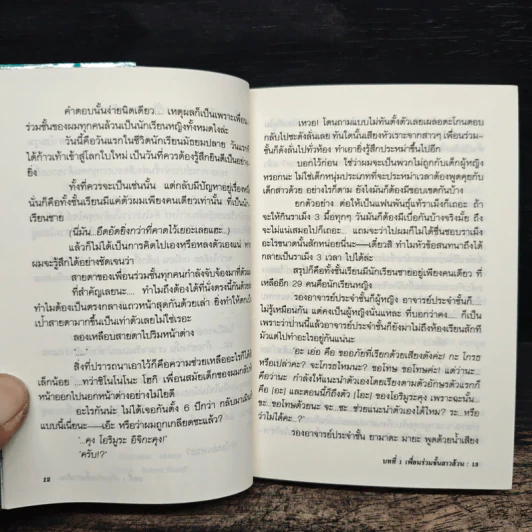 คำตอบนั้นง่ายนิดเดียว... เหตุผลก็เป็นเพราะเพื่อน
ร่วมชั้นของผมทุกคนล้วนเป็นนักเรียนหญิงทั้งหมดไงล่ะ
วันนี้คือวันแรกในชีวิตนักเรียนมัธยมปลาย วันแรกที่
ได้ก้าวเท้าเข้าสู่โลกใบใหม่ เป็นวันที่ควรต้องรู้สึกยินดีเป็นอย่าง
ยิ่ง
ทั้งที่ควรจะเป็นเช่นนั้น แต่กลับมีปัญหาอยู่เรื่องหนึ่ง
นั่นก็คือทั้งชั้นเรียนมีแค่ตัวผมเพียงคนเดียวเท่านั้น ที่เป็นนัก
เรียนชาย
(นี่มัน...อึดอัดยิ่งกว่าที่คาดไว้เยอะเลยแฮะ...)
แล้วก็ไม่ได้เป็นการคิดไปเองหรือหลงตัวเองแน่
ผมจะรู้สึกได้อย่างชัดเจนว่า
สายตาของเพื่อนร่วมชั้นทุกคนกำลังจับจ้องมาที่ตัวผม
ที่สำคัญเลยนะ.... ทำไมถึงต้องได้ที่นั่งตรงนี้กันด้วย
ทำไมต้องเป็นตรงกลางแถวหน้าสุดกันด้วยเล่า ยิ่งทำให้ตกเป็น
เป้าสายตามากขึ้นเป็นเท่าตัวเลยไม่ใช่เรอะ
ลองเหลือบสายตาไปริมหน้าต่าง
'....'
สิ่งที่ปรารถนาเอาไว้ก็คือความช่วยเหลืออะไรก็ได้สัก
เล็กน้อย ....ทว่าชิโนโนโนะ โฮกิ เพื่อนสมัยเด็กของผมกลับหัน
หน้าออกไปนอกหน้าต่างอย่างไม่ใยดี
อะไรกันน่ะ ไม่ได้เจอกันตั้ง 6 ปีกว่า กลับมาเมิน
แบบนี้เนี่ยนะ——เอ๊ะ หรือว่าผมถูกเกลียดซะแล้ว?
'..คุง โอริมูระ อิจิกะคุง!'
'ครับ!?'
12
เหวอ! โดนถามแบบไม่ทันตั้งตัวเลยเผลอตะโกนตอบ
กลับไปซะดังลั่นเลย ทันใดนั้นเสียงหัวเราะจากสาวๆ เพื่อนร่วม-
ชั้นก็ดังลั่นไปทั่วห้อง ทำเอายิ่งรู้สึกประหม่าขึ้นไปอีก
บอกไว้ก่อน ใช่ว่าผมจะเป็นพวกไม่ถูกกับเด็กผู้หญิง
หรอกนะ ไม่ใช่เด็กหนุ่มประเภทที่จะประหม่าเวลาต้องพูดคุยกับ
เด็กสาวด้วย อย่างไรก็ตาม ยังไงมันก็ต้องมีขอบเขตกันบ้าง
ยกตัวอย่าง ต่อให้เป็นแฟนพันธุ์แท้ราเม็งก็เถอะ ถ้า
จะให้กินราเม็ง 3 มื้อทุกๆ วันมันก็ต้องมีเบื่อกันบ้างจริงมั้ย ถึง
จะไม่แน่เสมอไปก็เถอะ... แถมจะว่าไปผมก็ไม่ได้ชื่นชอบราเม็ง
อะไรขนาดนั้นสักหน่อยนี่นะ——เดี๋ยวสิ ทำไมหัวข้อสนทนาถึงได้
กลายเป็นราเม็ง 3 เวลา ไปได้ล่ะ
สรุปก็คือทั้งชั้นเรียนมีนักเรียนชายอยู่เพียงคนเดียว ที่
เหลืออีก 29 คนคือนักเรียนหญิง
รองอาจารย์ประจำชั้นก็ผู้หญิง อาจารย์ประจำชั้นก็....
ไม่รู้เหมือนกัน แต่คงเป็นผู้หญิงนั่นแหละ ที่บอกว่าคง.... ก็เป็น
เพราะว่าป่านนี้แล้วอาจารย์ประจำชั้นก็ยังมาไม่ถึงห้องเรียนสักที
มัวแต่ไปทำอะไรอยู่กันแน่นะ
'อะ เอ่อ คือ ขออภัยที่เรียกด้วยเสียงดังค่ะ! กะ โกรธ
หรือเปล่าคะ? จะโกรธไหมนะ? ขอโทษ ขอโทษค่ะ! แต่ว่านะ...
คือว่านะ กำลังให้แนะนำตัวเองโดยเรียงตามตัวอักษรตัวแรกก็
คือ [อะ] และตอนนี้ก็ถึงตัว [โอะ] ของโอริมูระคุง เพราะฉะนั้น...
ขะ...ขอโทษด้วยนะ จะ...ชะ...ช่วยแนะนำตัวเองได้ไหม? ระ...หรือ
ว่าไม่ได้คะ..?'
รองอาจารย์ประจำชั้น ยามาดะ มายะ พูดด้วยน้ำเสียง
บทที่ 1 เพื่อนร่วมชั้นสาวล้วน : 13